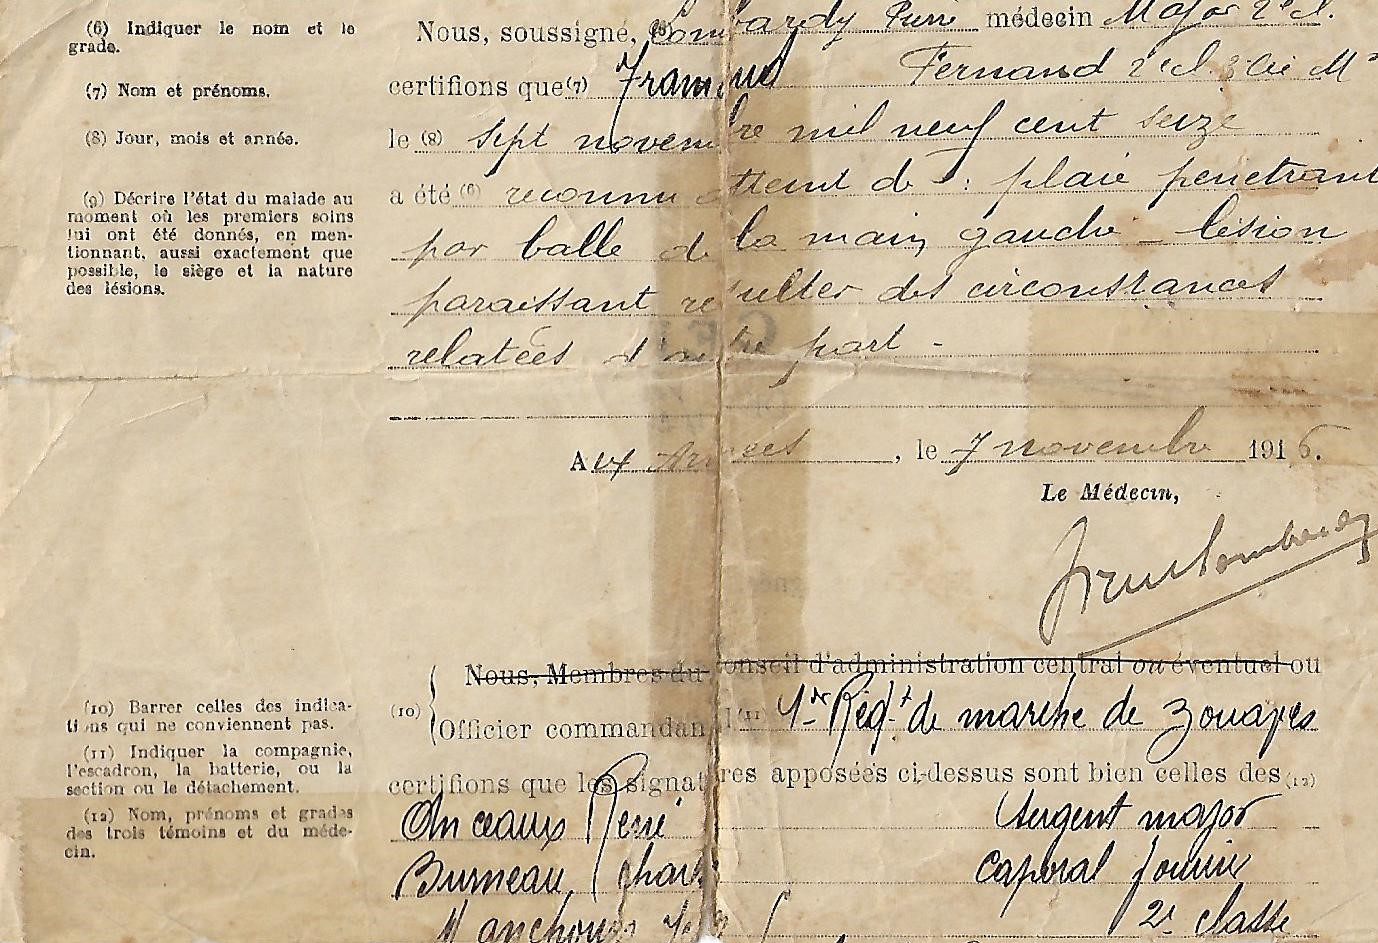 (6) Indiquer le nom et le
grade.
(7) Nom et prénoms.
(8) Jour, mois et année.
(9) Décrire l'état du malade au
moment où les premiers soins
lui ont été donnés, en men-
tionnant, aussi exactement que
possible, le siège et la nature
des lésions.
Nous, soussigné, (6) Lombardy Pierre médecin Major 2e cl.
certifions que (7) Fernand 2e cl.
le (8) Sept novembre mil neuf cent seize
a été (6) reconnu atteint de : plaie pénétrant
par balle de la main gauche – lésion
paraissant résulter des circonstances
relatées d'autre part –
Aux Armées, le 7 novembre 1916.
Le Médecin,
Pierre Lombardy
(10) Barrer celles des indica-
tions qui ne conviennent pas.
(11) Indiquer la compagnie,
l'escadron, la batterie, ou la
section ou le détachement.
(12) Nom, prénoms et grades
des trois témoins et du méde-
cin.
Nous, Membres du conseil d'administration central ou éventuel ou
(10) Officier commandant (11) 4me Régt de marche de Zouaves
certifions que les signatures apposées ci-dessus sont bien celles des (12)
Anceaux René Sergent major
Burneau Charles Caporal fourrier
2e classe